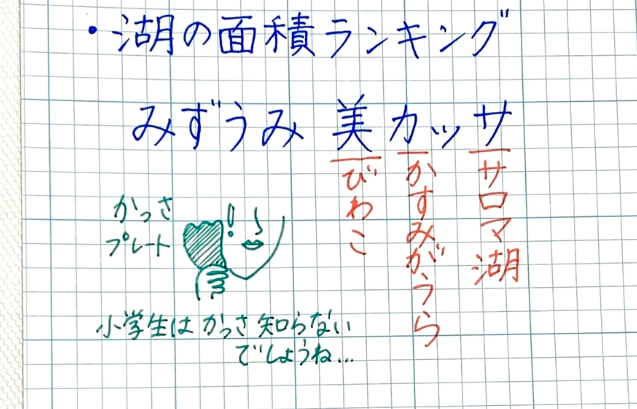 ・湖の面積ランキング
みずうみ 美カッサ
びわこ
かすみがうら
サロマ湖
かっさ
プレート
小学生はかっさ知らない
でしょうね…